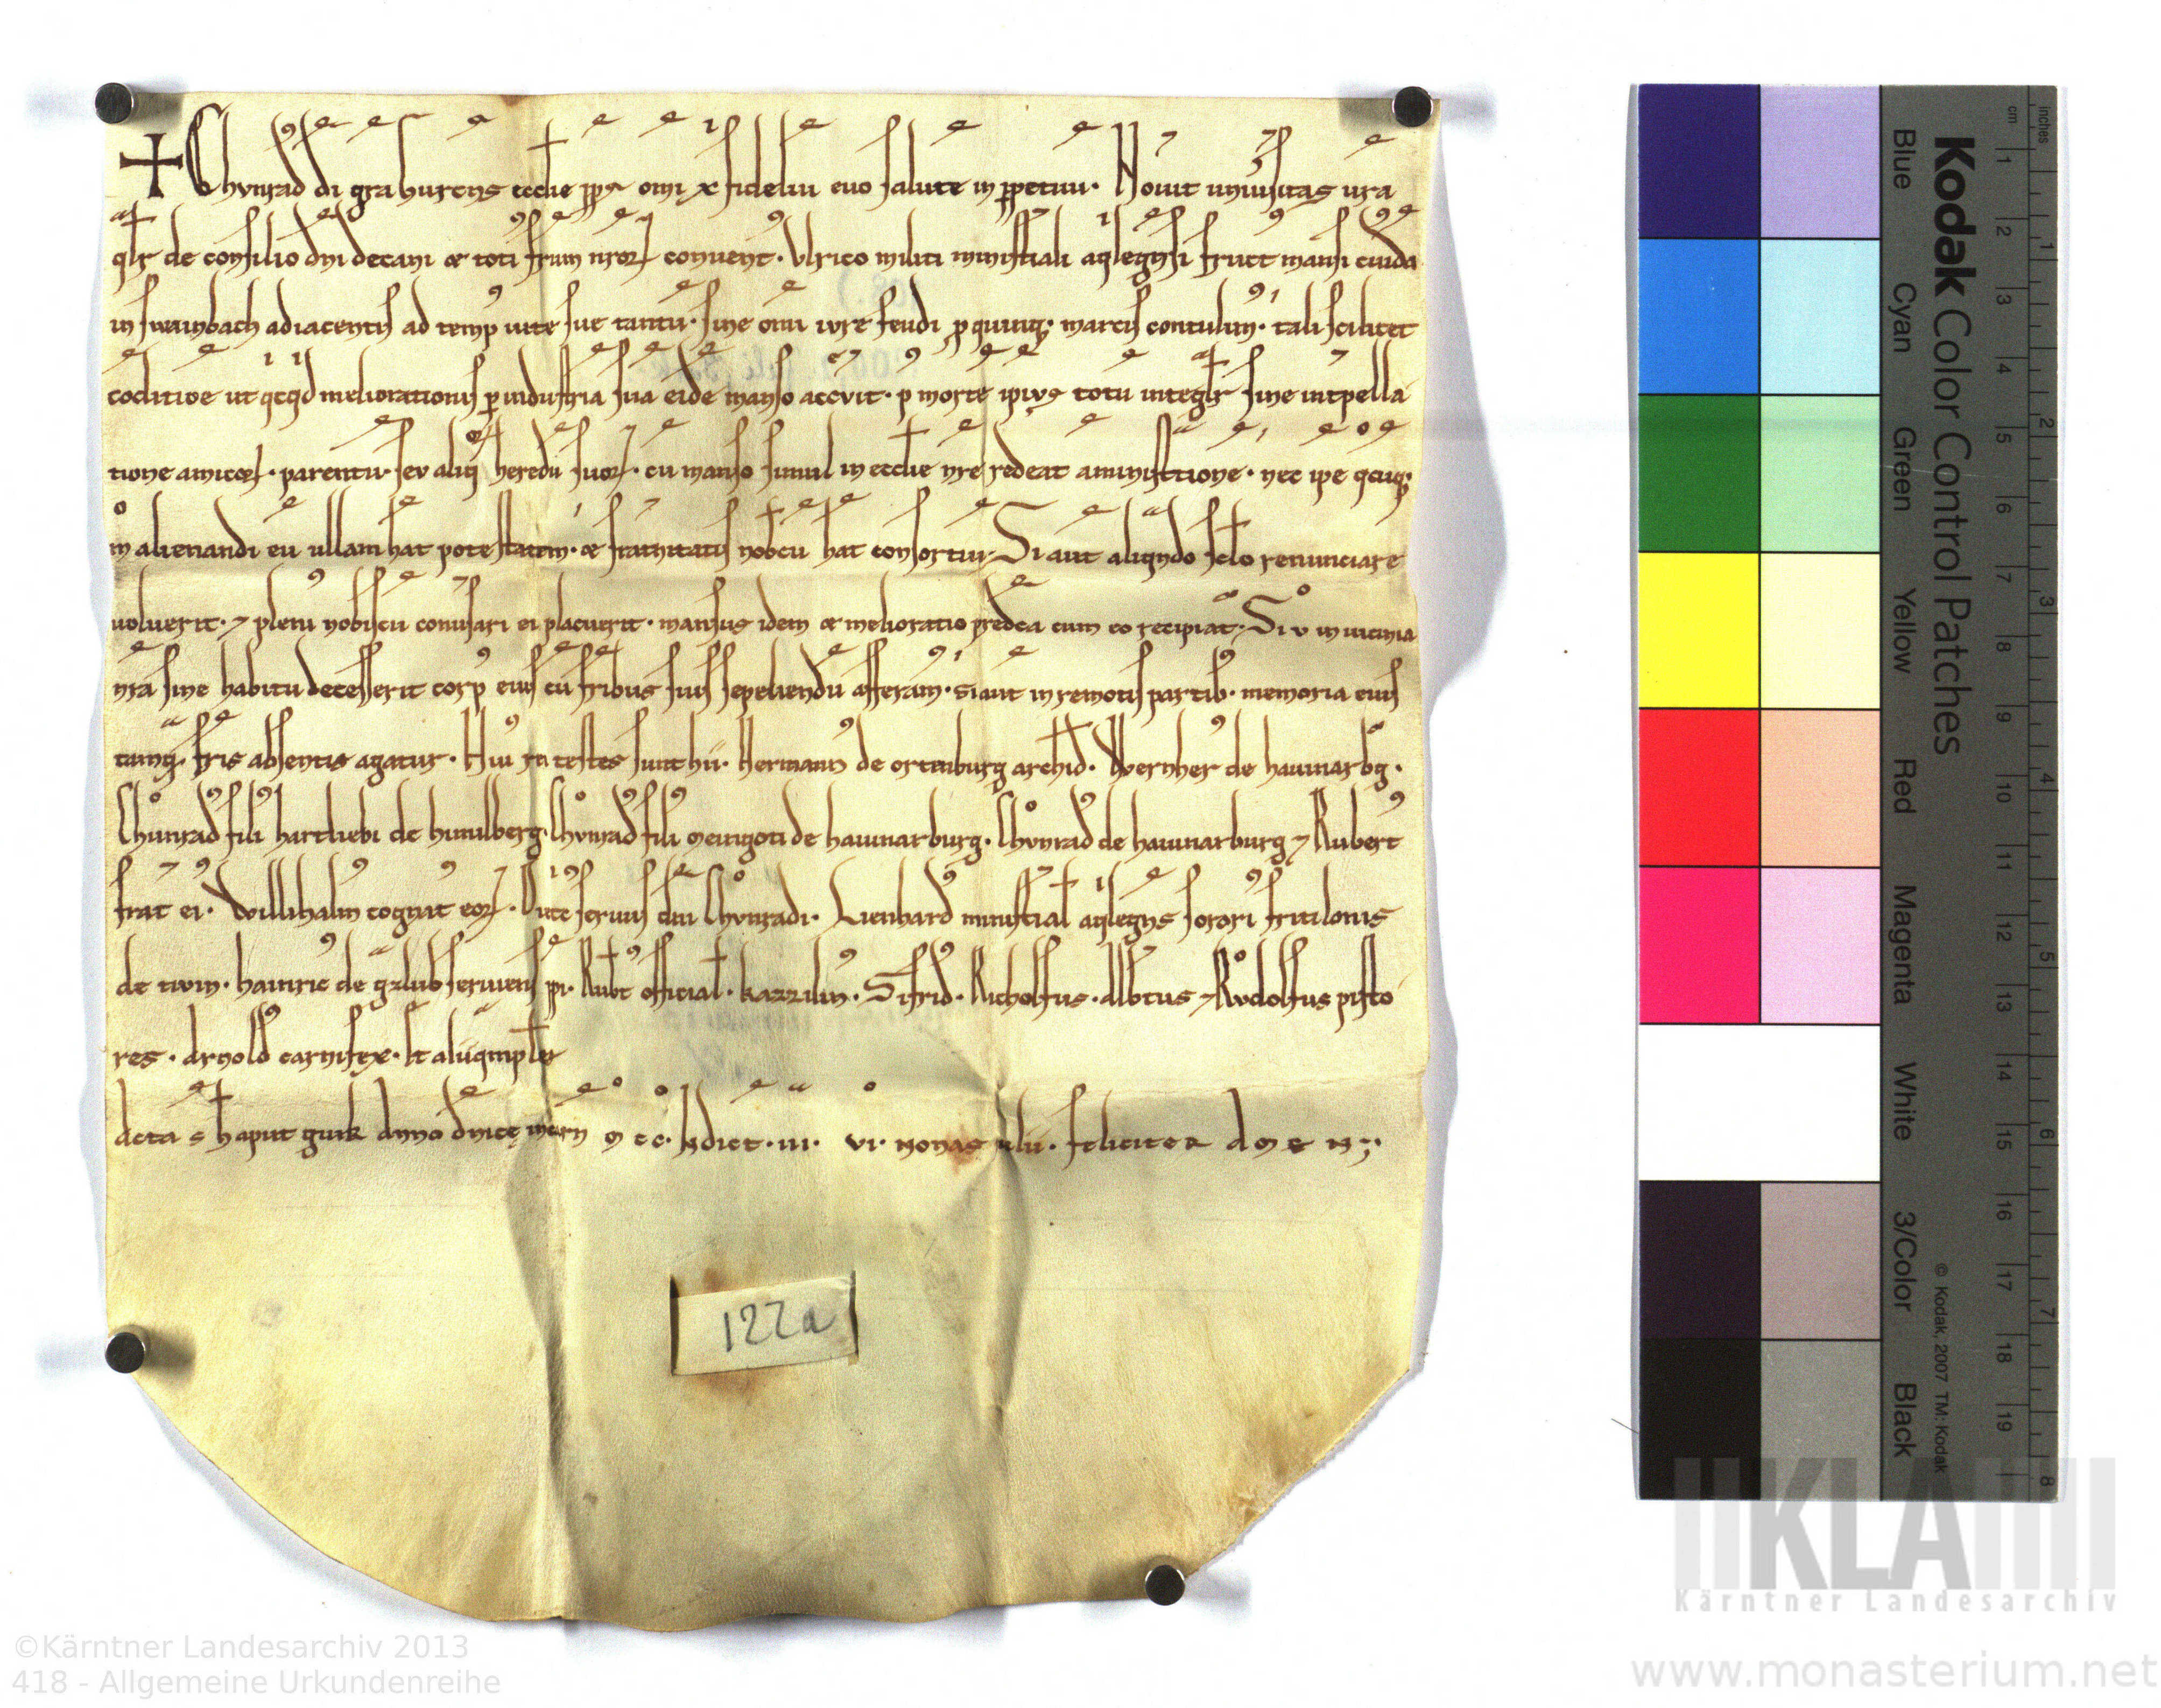 Chvnrad di gra gurcens ecclie ppt omi x fideliu euo salute in ppetuu. Nouit uniusitas ura
qlr de consilio dni decani et toti frum nror conuent. Vlrico militi ministiali aqlegnsi fruct mansi cuida
in swainbach adiacentis ad temp uite sue tantu. sine omi ivre feudi p quinq; marcis contulim. tali scilicet
coditioe ut qcqd meliorationis p industria sua eide manso accvit. p morte ipivs totu integlr sine intpella
tione amicor. parentu. sev aliq heredu suor. cu manso simul in ecclie nre redeat aministtione. nec ipe qcuq;
m alienandi eu ullam hat potestatem. et fratnitatis nobcu hat consortiu. Si aut aliqndo sclo renunciare
uoluerit. 7 pleni nobiscu conusari ei placuerit. mansus idem et melioratio predca cum eo recipiat. Si v in uicinia
nra sine habitu decesserit corp eius cu fribus suis sepeliendu afferam. si aut in remotis partib. memoria eius
tamq. fris absentis agatur. Hui rei testes sunt hii. Hermann de ortenburg archid. Wernher de hauinarbg.
Chunrad fili hartliebi de himilberg. Chvnrad fili meingoti de hauinarburg. Chvnrad de hauinarburg 7 Rubert
frat ei. Willihalm cognat eor. Dite seruus dni Chvnradi. Lienhard ministial aqlegns sorori fritilonis
de twin. hainric de gzlub seruiens ppi. Rubt official. kazzilin. Sifrid. Richolfus. Albtus 7 Rvdolfus pisto
res. Arnold carnifex. Et alii qmples
Acta s h aput gurk Anno dnice incarn m c c. Indict. iii. vi. nonas iulii. feliciter Amen
122a
Kodak Color Control Patches
Blue Cyan Green Yellow Red Magenta White 3/Color Black
© Kodak, 2007 TM: Kodak
cm 1 2 3 4 5 6 7 8 9 10 11 12 13 14 15 16 17 18 19
inches 1 2 3 4 5 6 7 8
KLA
Kärntner Landesarchiv
©Kärntner Landesarchiv 2013
418 - Allgemeine Urkundenreihe
www.monasterium.net